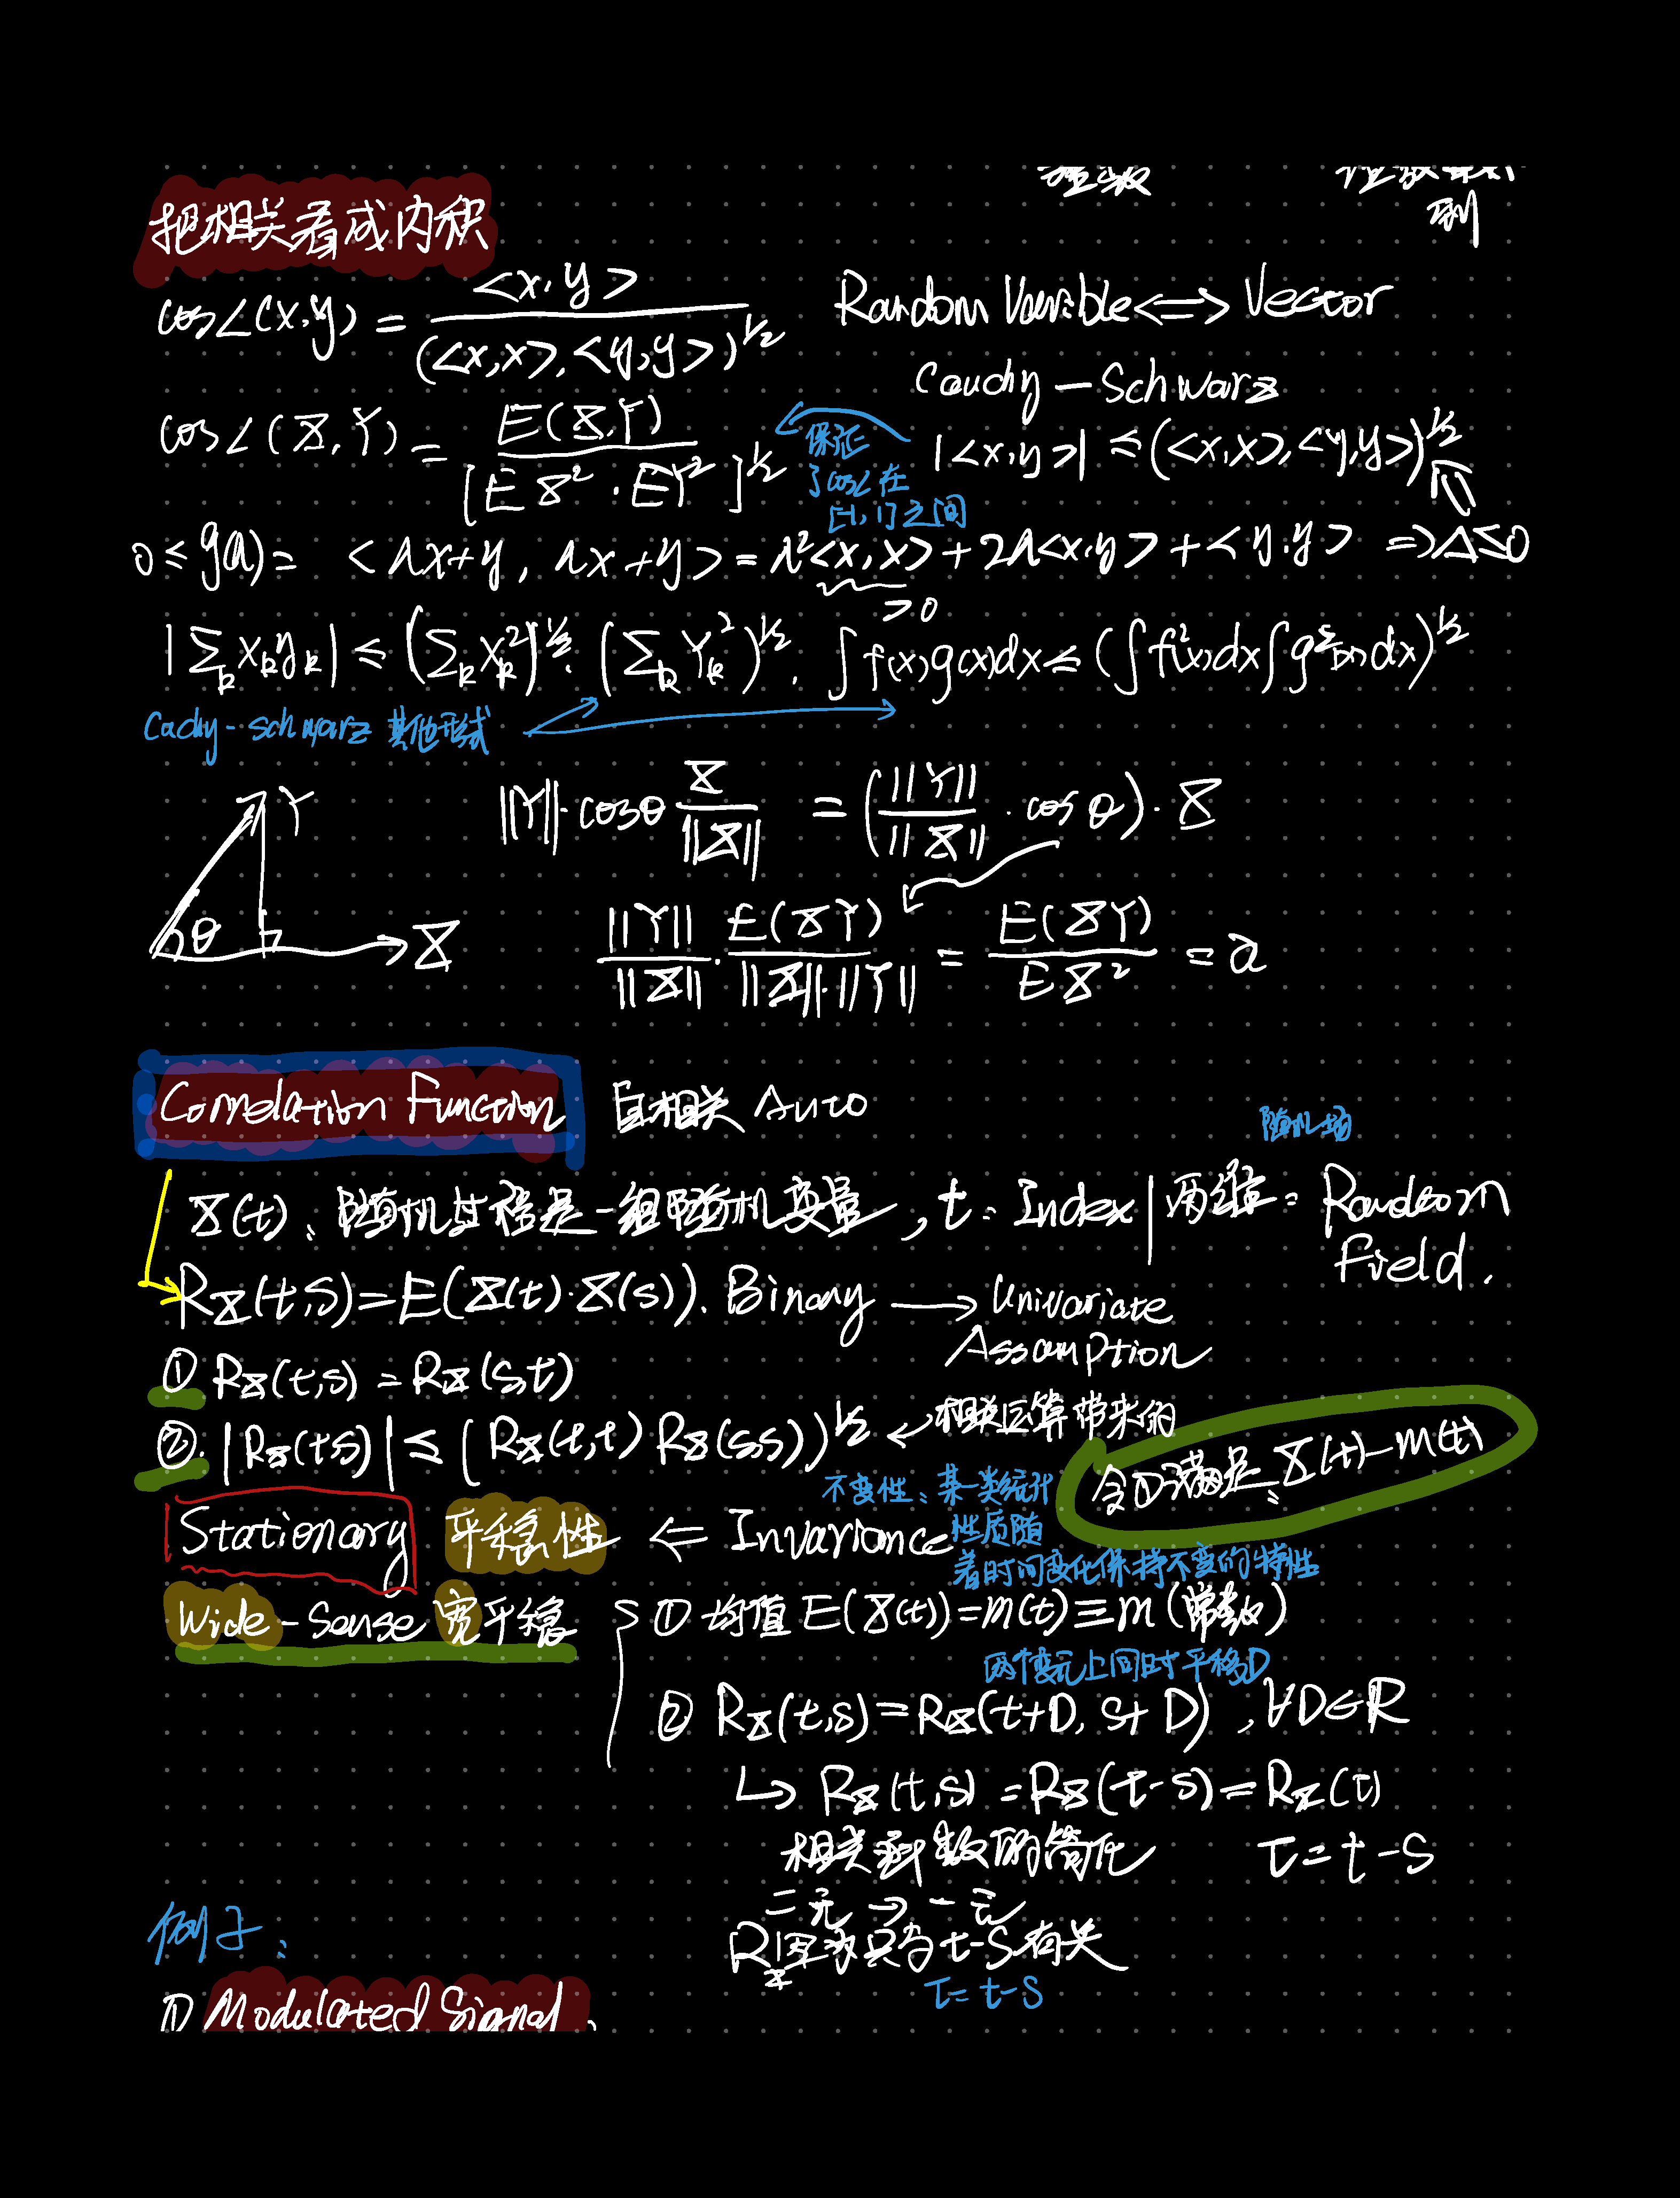 把相关看成内积
cos∠(x,y) = <x,y> / (<x,x>,<y,y>)^1/2
Random Variable <=> Vector
Cauchy-Schwarz
cos∠(X,Y) = E(X,Y) / [EX²·EY²]^1/2
保证
了cos∠在
[-1,1]之间
|<x,y>| ≤ (<x,x>,<y,y>)^1/2
0 ≤ g(λ) = <λx+y, λx+y> = λ²<x,x> + 2λ<x,y> + <y,y> => Δ≤0
>0
|Σ_k x_k y_k| ≤ (Σ_k X_k²)^1/2 · (Σ_k Y_k²)^1/2 . ∫f(x)g(x)dx ≤ (∫f²(x)dx∫g²(x)dx)^1/2
Cachy-schwarz 其他形式
Y
||Y||·cosθ X/||X|| = (||Y||/||X|| · cosθ)·X
θ
X
||Y||/||X|| · E(XY)/||X||·||Y|| = E(XY)/EX² = a
Correlation Function
自相关 Auto
随机场
X(t): 随机过程是一组随机变量, t: Index | 两维: Random
Field.
R_X(t,s)=E(X(t)·X(s)). Binary → Univariate
Assumption
① R_X(t,s) = R_X(s,t)
②. |R_X(t,s)| ≤ (R_X(t,t) R_X(s,s))^1/2 ← 相关运算带来的
X(t)-m(t)
不变性: 某一类统计
性质随
着时间变化保持不变的特性
Stationary 平稳性 ⇐ Invariance
Wide-Sense 宽平稳
① 均值 E(X(t))=m(t)≡m (常数)
两个变元上同时平移D
② R_X(t,s)=R_X(t+D, s+D), ∀D∈R
↳ R_X(t,s) = R_X(t-s) = R_X(τ)
相关函数的简化 τ=t-s
二元 → 一元
R_X 只与t-s有关
τ=t-s
例子:
① Modulated Signal.